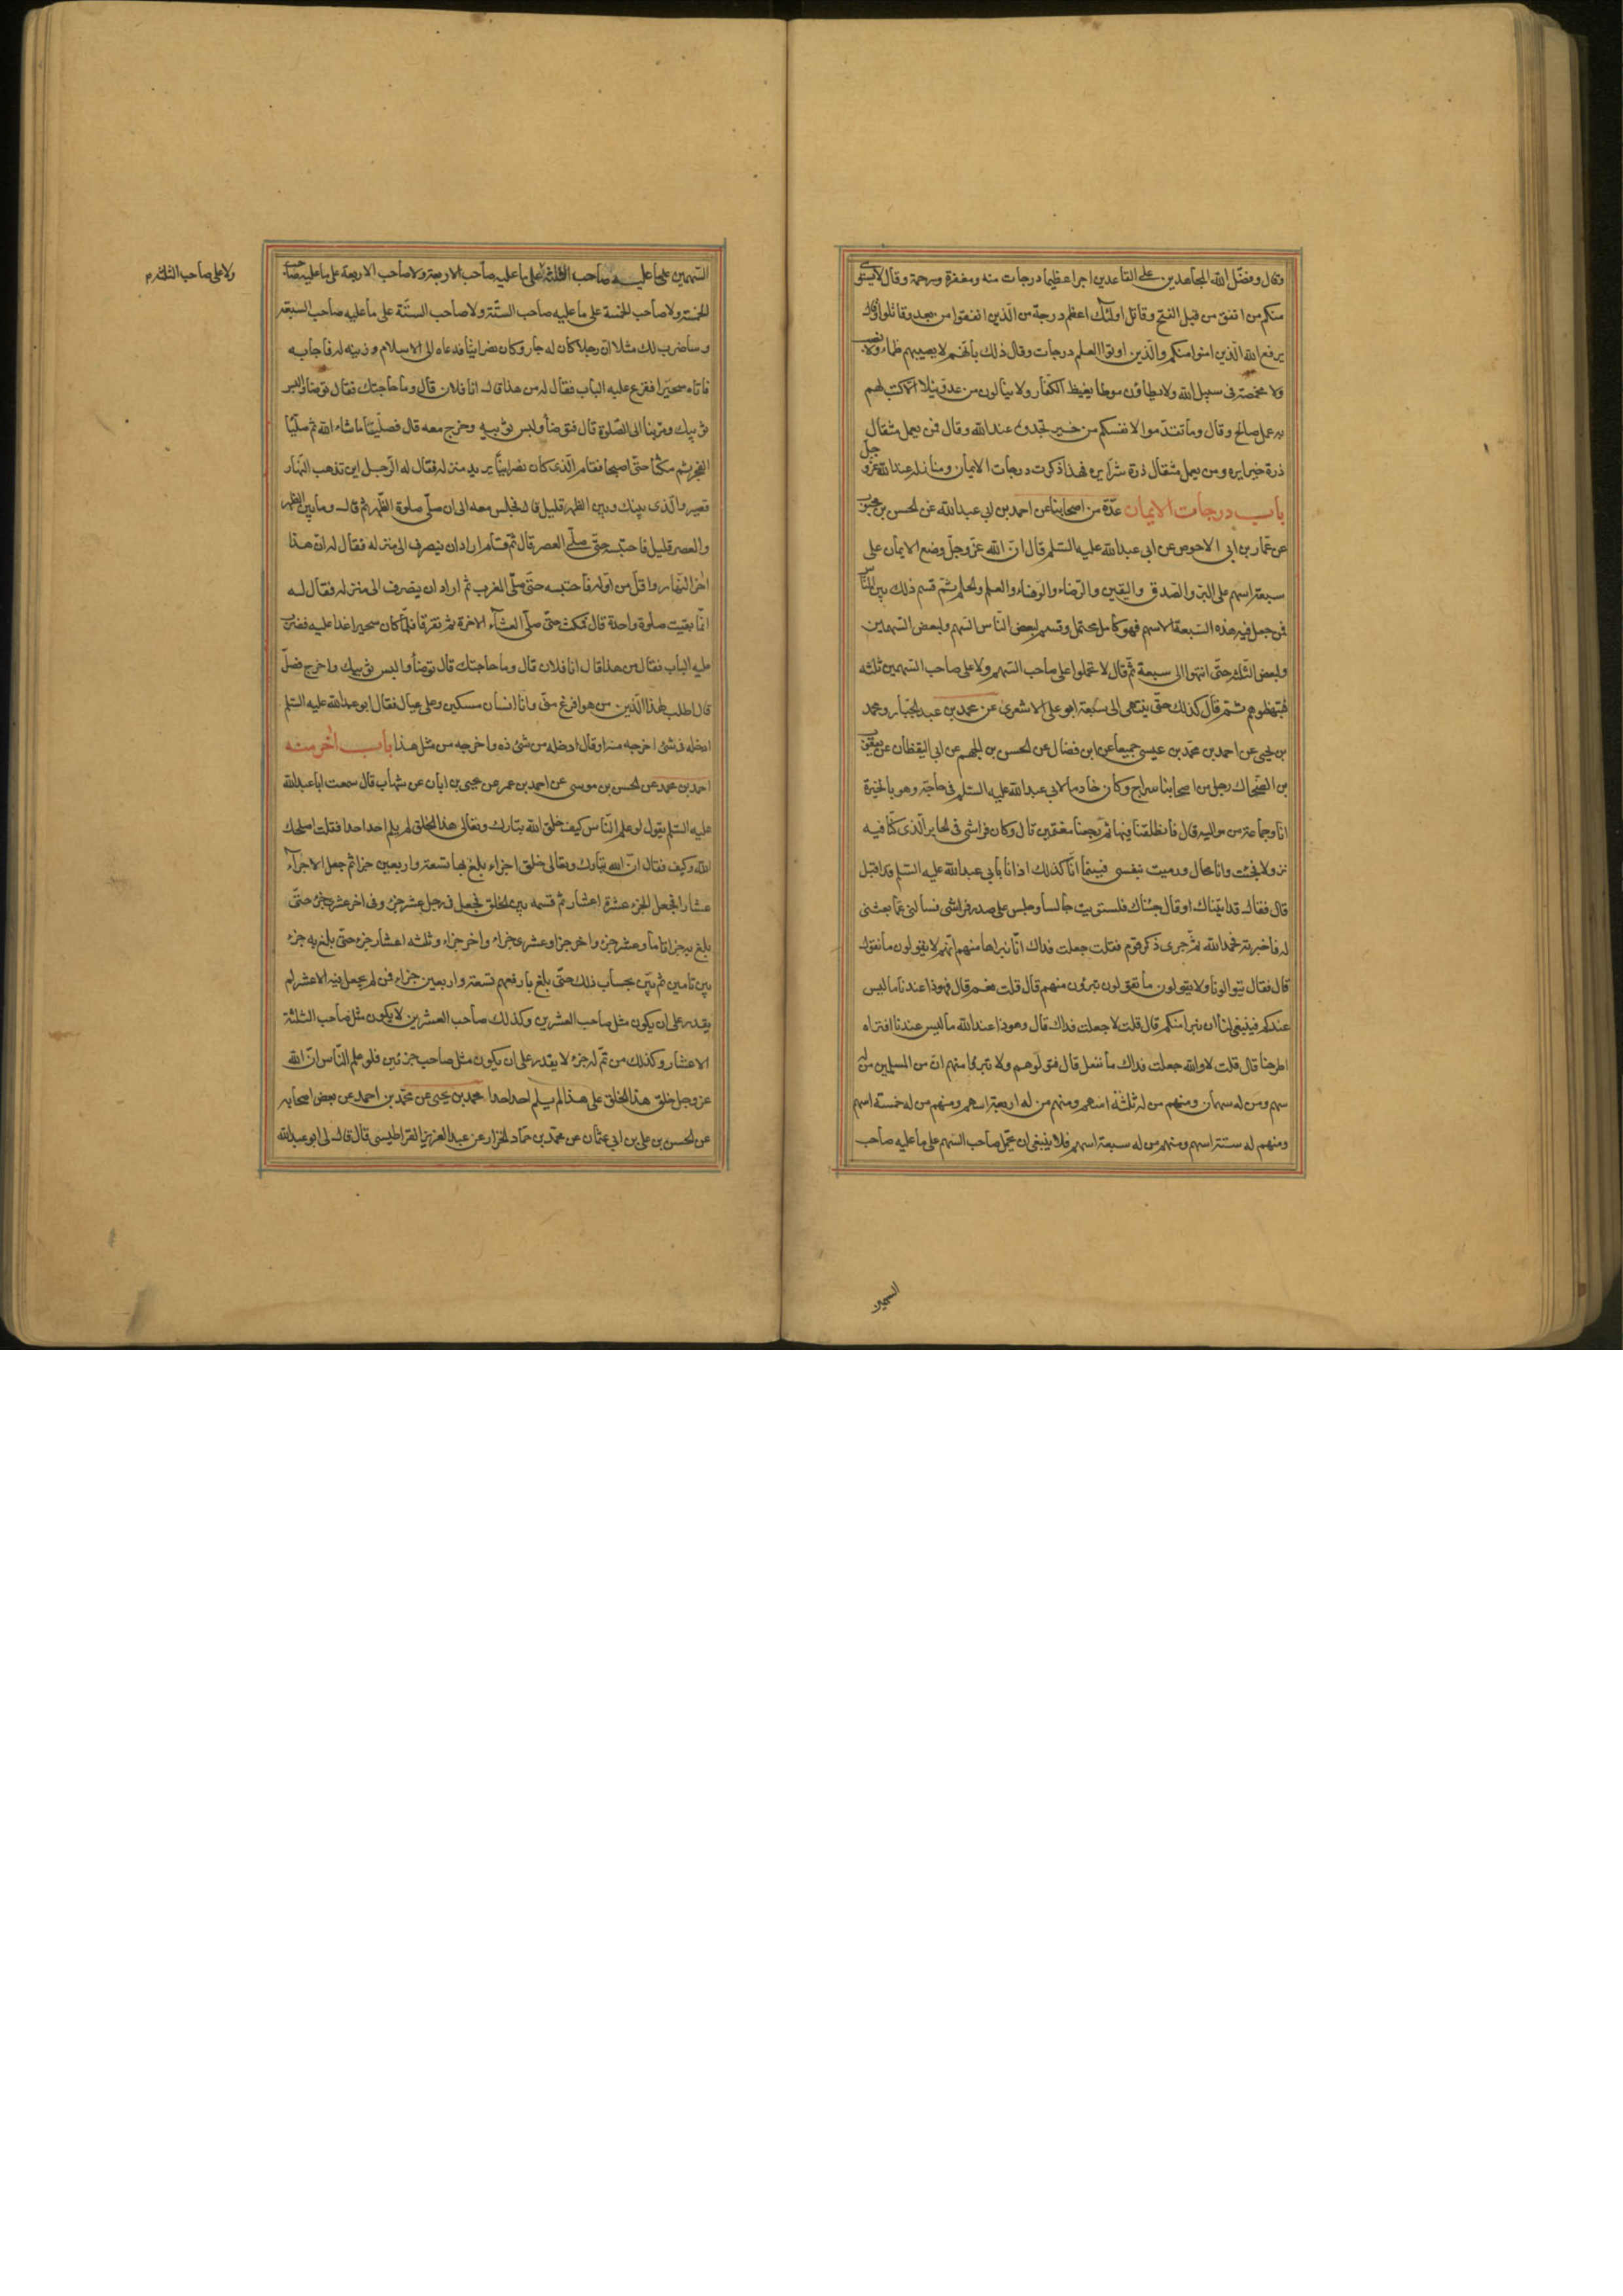 وقال وفضّل الله المجاهدين على القاعدين اجرا عظيما درجات منه ومغفرة ورحمة وقال لا يستوى
منكم من انفق من قبل الفتح وقاتل اولئك اعظم درجة من الّذين انفقوا من بعد وقاتلوا وقال
يرفع الله الّذين امنوا منكم والّذين اوتوا العلم درجات وقال ذلك بانّهم لا يصيبهم ظماء ولا نصب
ولا مخمصة فى سبيل الله ولا يطاؤن موطا يغيظ الكفّار ولا ينالون من عدوّ نيلا الّا كتب لهم
به عمل صالح وقال وما تقدّموا لانفسكم من خير تجدوه عند الله وقال فمن يعمل مثقال
ذرة خيرا يره ومن يعمل مثقال ذرة شرّا يره فهذا ذكر درجات الايمان ومنازله عند الله عزّ وجلّ
باب درجات الايمان عدّة من اصحابنا عن احمد بن ابى عبد الله عن الحسن بن محبوب
عن عمّار بن ابى الاحوص عن ابى عبد الله عليه السّلم قال انّ الله عزّ وجلّ وضع الايمان على
سبعة اسهم على البرّ والصّدق واليقين والرّضاء والوفاء والعلم والحلم ثمّ قسم ذلك بين النّاس
فمن جعل فيه هذه السّبعة الاسهم فهو كامل محتمل وقسم لبعض النّاس السّهم ولبعض السّهمين
ولبعض الثّلثة حتّى انتهوا الى سبعة ثمّ قال لا تحملوا على صاحب السّهم ولا على صاحب السّهمين ثلثه
فتبهظوهم ثمّ قال كذلك حتّى ينتهى الى سبعة ابو على الاشعرى عن محمد بن عبد الجبّار ومحمد
بن يحيى عن احمد بن محمّد بن عيسى جميعا عن ابن فضال عن الحسن بن الجهم عن ابى اليقظان عن يعقوب
بن الضّحاك رجل من اصحابنا سراج وكان خادما لابى عبد الله عليه السّلم فى حاجة وهو بالحيرة
انا وجماعة من مواليه قال فانطلقنا فيها ثمّ رجعنا مغتمين قال وكان فراشى فى الحاير الّذى كنّا فيه
نزولا فجئت وانا بحال ورميت بنفسى فبينما انا كذلك اذا انا بابى عبد الله عليه السّلم قد اقبل
قال فقال قد اتيناك او قال جئناك فاستويت جالسا وجلس على صدر فراشى فسالنى عمّا بعثنى
له فاخبرته فحمد الله ثمّ جرى ذكر قوم فقلت جعلت فداك انّا نبرا منهم انّهم لا يقولون ما نقول
قال فقال يتولونا ولا يقولون ما تقولون تبرؤن منهم قال قلت نعم قال فهو ذا عندنا ما ليس
عندكم فينبغى لنا ان نبرا منكم قال قلت لا جعلت فداك قال وهو ذا عند الله ما ليس عندنا افتراه
اطرحنا قال قلت لا والله جعلت فداك ما نفعل قال فتولّوهم ولا تبرؤا منهم انّ من المسلمين من له
سهم ومن له سهمان ومنهم من له ثلثة اسهم ومنهم من له اربعة اسهم ومنهم من له خمسة اسهم
ومنهم له ستّة اسهم ومنهم من له سبعة اسهم فلا ينبغى ان يحمل صاحب السّهم على ما عليه صاحب
السهمين
السّهمين على ما عليه صاحب الثلثة على ما عليه صاحب الاربعة ولا صاحب الاربعة على ما عليه صاحب
ولا على صاحب الثلثة
الخمسة ولا صاحب الخمسة على ما عليه صاحب السّتّة ولا صاحب السّتّة على ما عليه صاحب السبعة
وساضرب لك مثلا انّ رجلا كان له جار وكان نصرانيّا فدعاه الى الاسلام وزينه له فاجابه
فاتاه سحيرا فقرع عليه الباب فقال له من هذا قال انا فلان قال وما حاجتك فقال توضأ والبس
ثوبيك ومرّ بنا الى الصّلوة قال فتوضأ ولبس ثوبيه وخرج معه قال فصلّيا ما شاء الله ثم صلّيا
الفجر ثم مكثا حتّى اصبحا فقام الّذى كان نصرانيّا يريد منزله فقال له الرّجل اين تذهب النّهار
قصير والّذى بينك وبين الظهر قليل قال فجلس معه الى ان صلّى صلوة الظّهر ثم قال وما بين الظهر
والعصر قليل فاحتبسه حتّى صلّى العصر قال ثمّ قام اراد ان ينصرف الى منزله فقال له انّ هذا
اخر النّهار واقلّ من اوّله فاحتبسه حتّى صلّى المغرب ثم اراد ان ينصرف الى منزله فقال له
انّما بقيت صلوة واحدة قال فمكث حتّى صلّى العشآء الاخرة ثم تفرّقا فلمّا كان سحيرا غدا عليه فضرب
عليه الباب فقال من هذا قال انا فلان قال وما حاجتك قال توضأ والبس ثوبيك واخرج فصلّ
قال اطلب لهذا الدّين من هو افرغ منّى وانا انسان مسكين وعلى عيال فقال ابو عبد الله عليه السّلم
ادخله فى شئ اخرجه منه او قال ادخله من شئ ذه واخرجه من مثل هذا باب اخر منه
احمد بن محمد عن الحسن بن موسى عن احمد بن عمر عن يحيى بن ابان عن شهاب قال سمعت ابا عبد الله
عليه السّلم يقول لو علم النّاس كيف خلق الله تبارك وتعالى هذا الخلق لم يلم احد احدا فقلت اصلحك
الله وكيف فقال انّ الله تبارك وتعالى خلق اجزاء بلغ بها تسعة واربعين جزا ثم جعل الاجزآء
عشارا فجعل الجزء عشرة اعشار ثمّ قسمه بين الخلق فجعل فى رجل عشر جزء وفى اخر عشرى جزء حتّى
بلغ به جزا تاما وعشر جزء واخر جزا وعشرى جزاء واخر جزاء وثلثه اعشار جزء حتّى بلغ به جزء
ين تامين ثم بحساب ذلك حتّى بلغ بارفعهم تسعة واربعين جزاء فمن لم يجعل فيه الا عشر لم
يقدر على ان يكون مثل صاحب العشرين وكذلك صاحب العشرين لا يكون مثل صاحب الثلثة
الاعشار وكذلك من تمّ له جزء لا يقدر على ان يكون مثل صاحب جزئين فلو علم النّاس انّ الله
عز وجل خلق هذا الخلق على هذا لم يلم احد احدا محمد بن يحيى عن محمّد بن احمد عن بعض اصحابه
عن الحسن بن على بن ابى عثمان عن محمّد بن حماد الخزار عن عبد العزيز القراطيسى قال قال لى ابو عبد الله